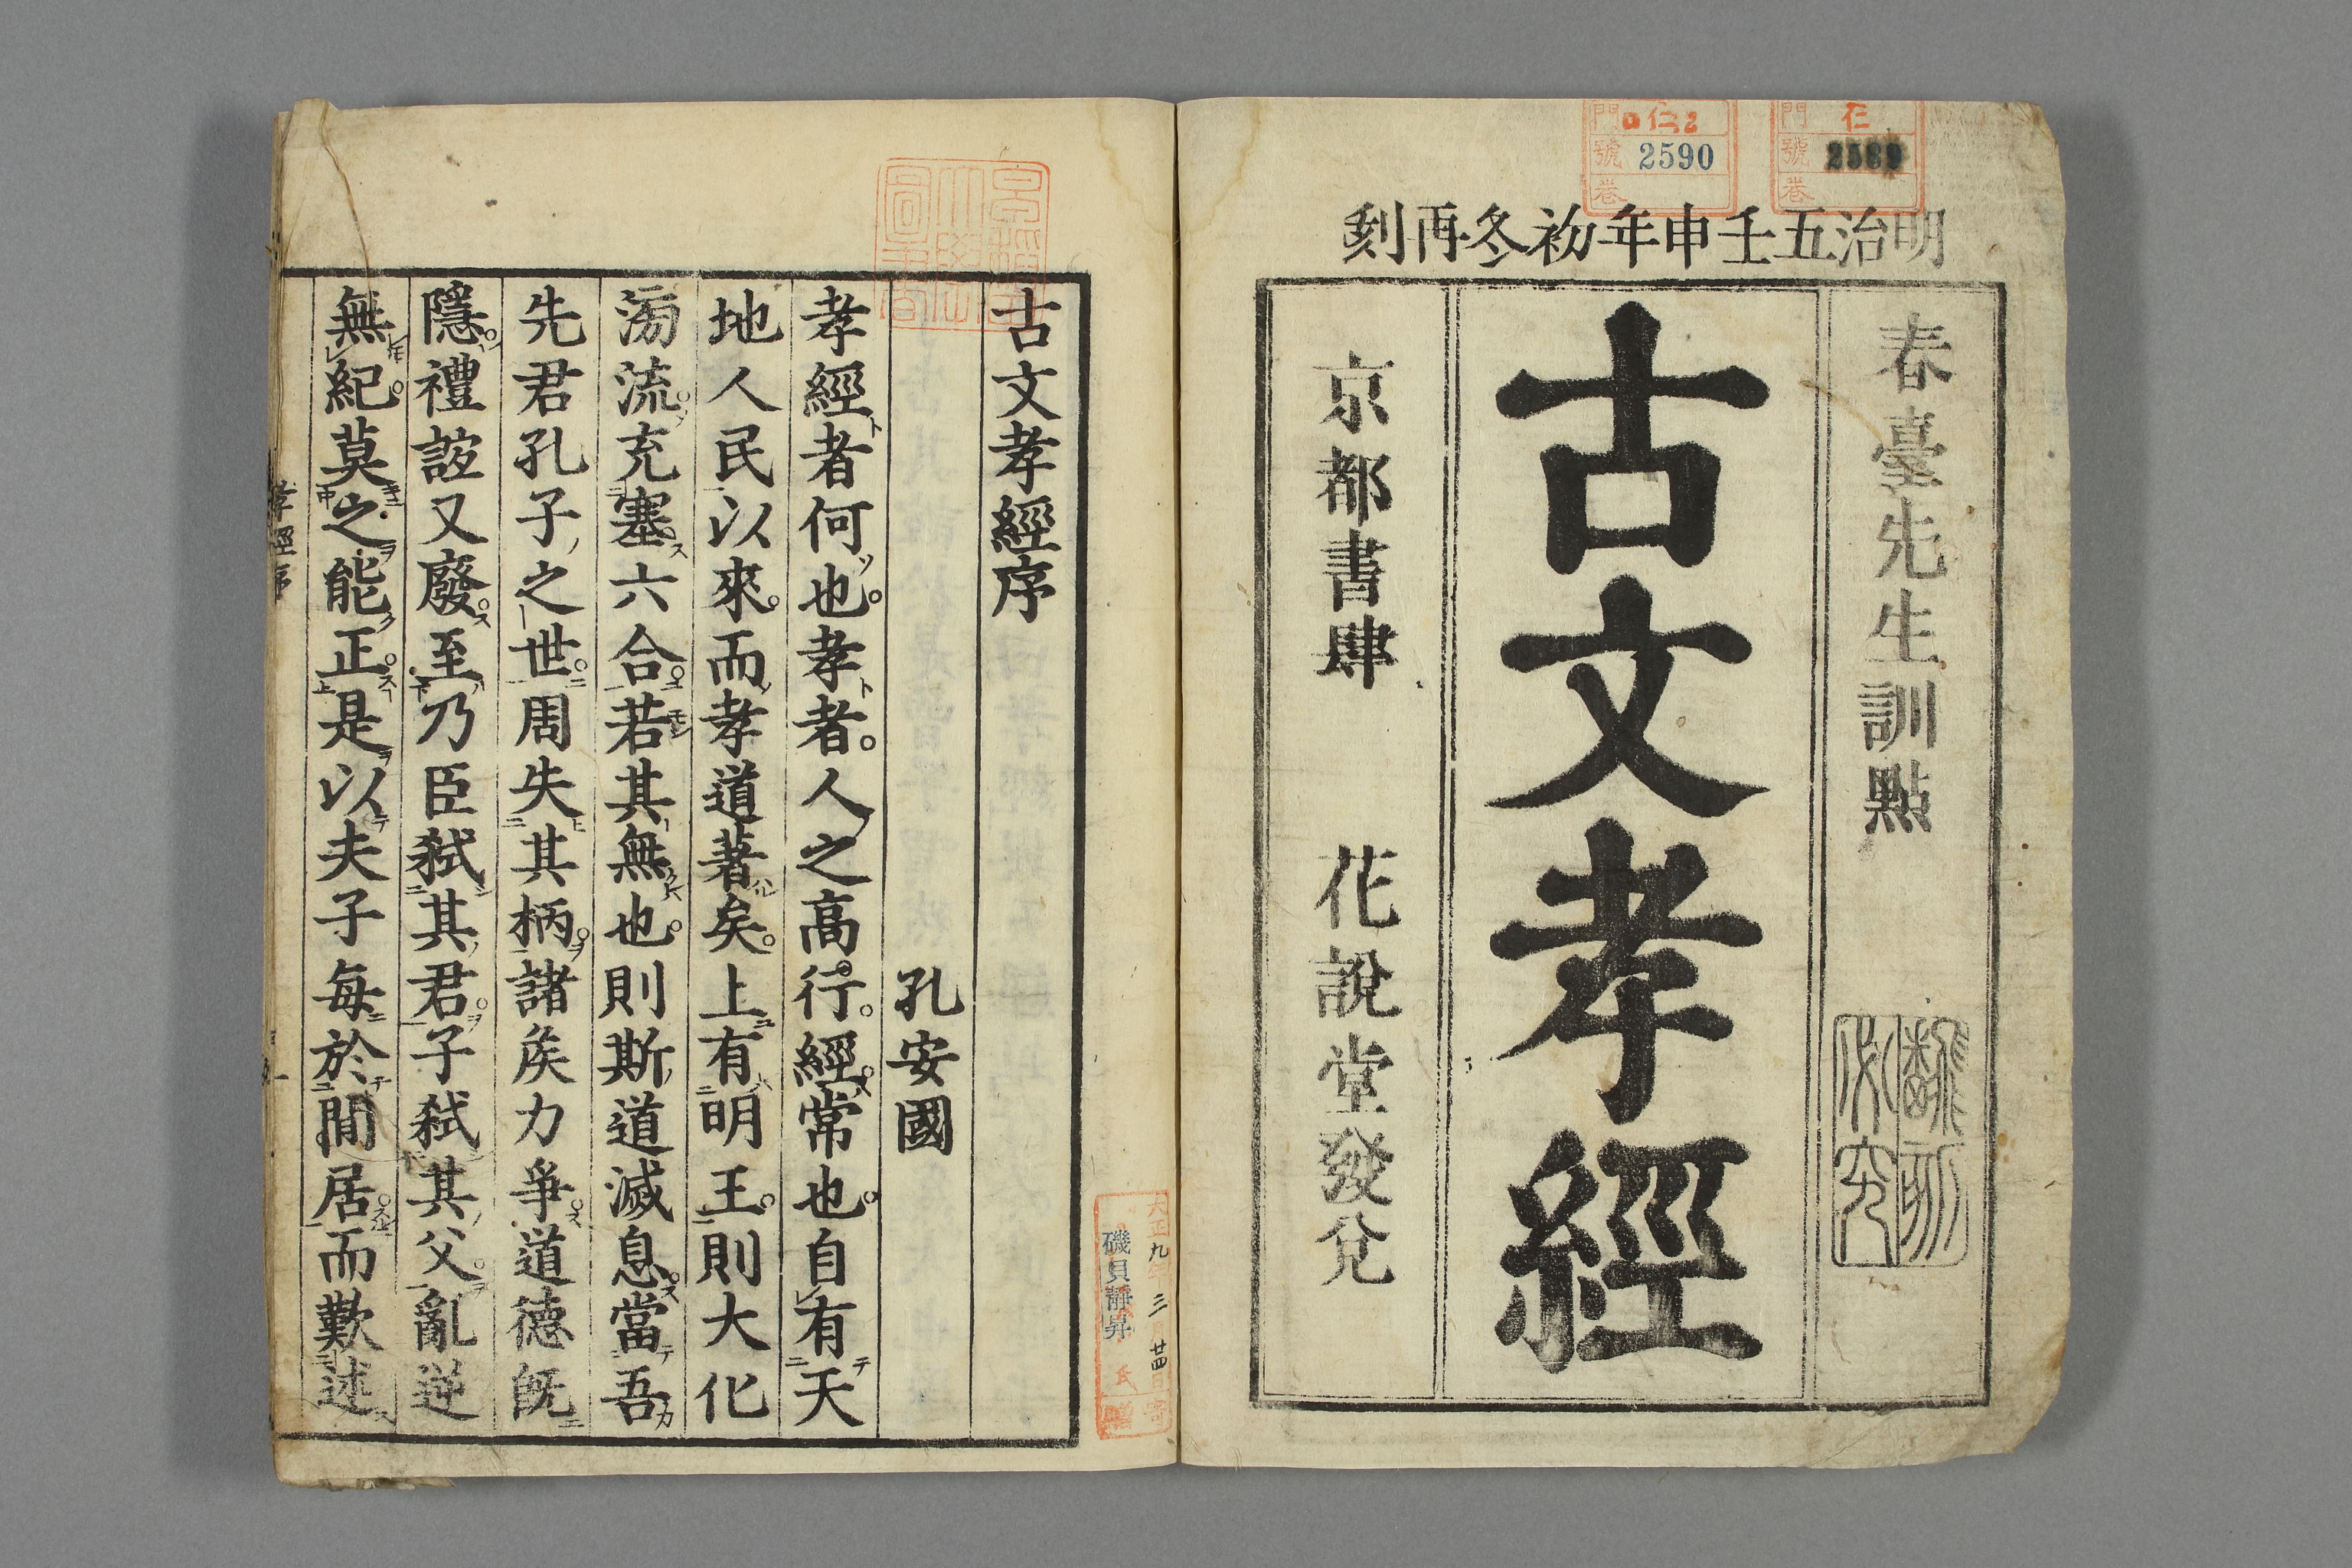 明治五壬申年初冬再刻
春臺先生訓點
古文孝經
京都書肆 花說堂發兌
門 仁
號 2589
卷
門 仁2
號 2590
卷
大正九年三月廿四日寄
磯貝靜昇氏贈
古文孝經序
孔安國
孝經者何也。孝者。人之高行。經常也。自有天
地人民以來。而孝道著矣。上有明王。則大化
滂流。充塞六合。若其無也。則斯道滅息。當吾
先君孔子之世。周失其柄。諸矦力爭。道德旣
隱。禮誼又廢。至乃臣弑其君。子弑其父。亂逆
無紀。莫之能正。是以夫子每於閒居。而歎述
孝經序 一